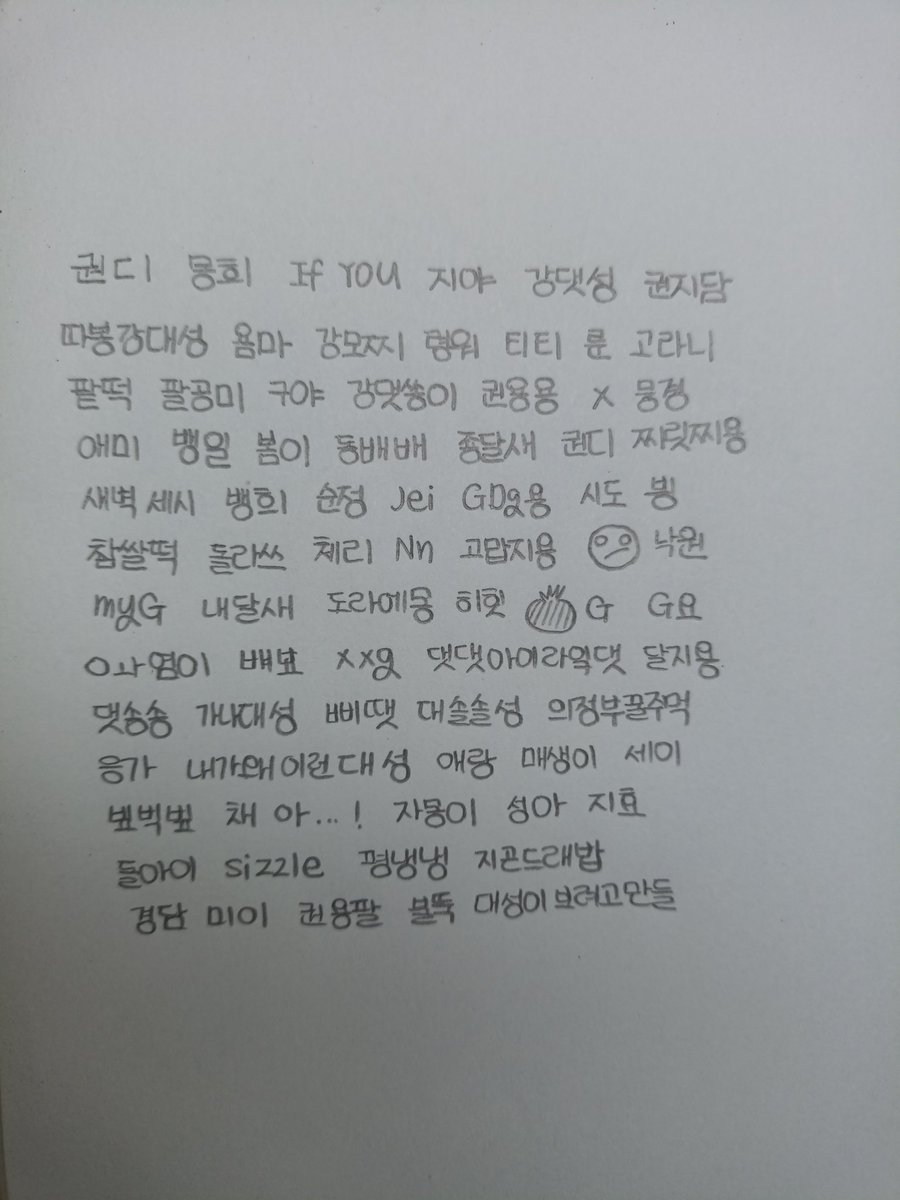 권디 몽희 If YOU 지야 강댓성 권지담
따봉강대성 욤마 강모찌 령워 티티 룬 고라니
팥떡 팔공미 구야 강댓쏭이 권용용 x 뭉졍
애미 뱅일 봄이 동배배 종달새 권디 찌릿찌용
새벽세시 뱅희 순정 Jei GDg용 시도 빙
찹쌀떡 돌라쓰 체리 Nn 고맙지용 낙원
myG 내달새 도라에몽 히힛 G G요
ㅇㅘ염이 배보 xxg 댓댓아이라잌댓 달지용
댓송송 가나대성 삐땟 대솔솔성 의정부꿀주먹
응가 내가왜이런대성 애랑 매생이 세이
볖벅볖 채 아...! 자몽이 성아 지효
돌아이 sizzle 평냉냉 지곤드래밥
경담 미이 권용팔 불뚝 대성이보려고만듦